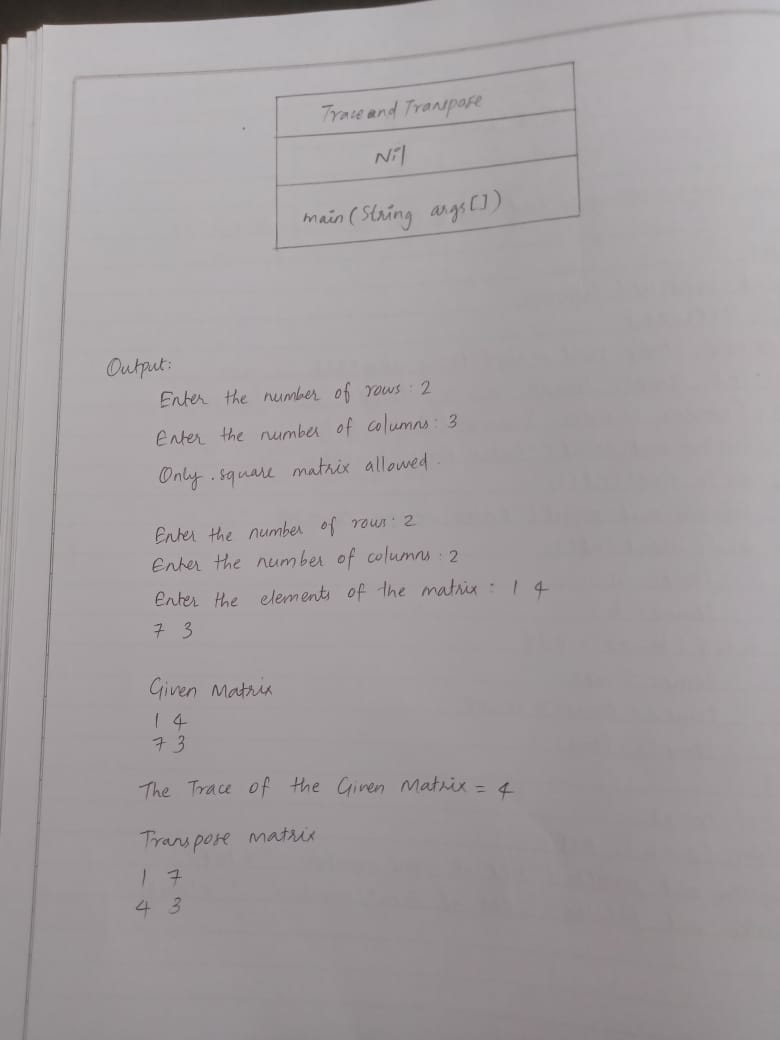 Trace and Transpose
Nil
main (String args[])
Output:
Enter the number of rows : 2
Enter the number of columns : 3
Only square matrix allowed.
Enter the number of rows : 2
Enter the number of columns : 2
Enter the elements of the matrix : 1 4
7 3
Given Matrix
1 4
7 3
The Trace of the Given Matrix = 4
Transpose matrix
1 7
4 3